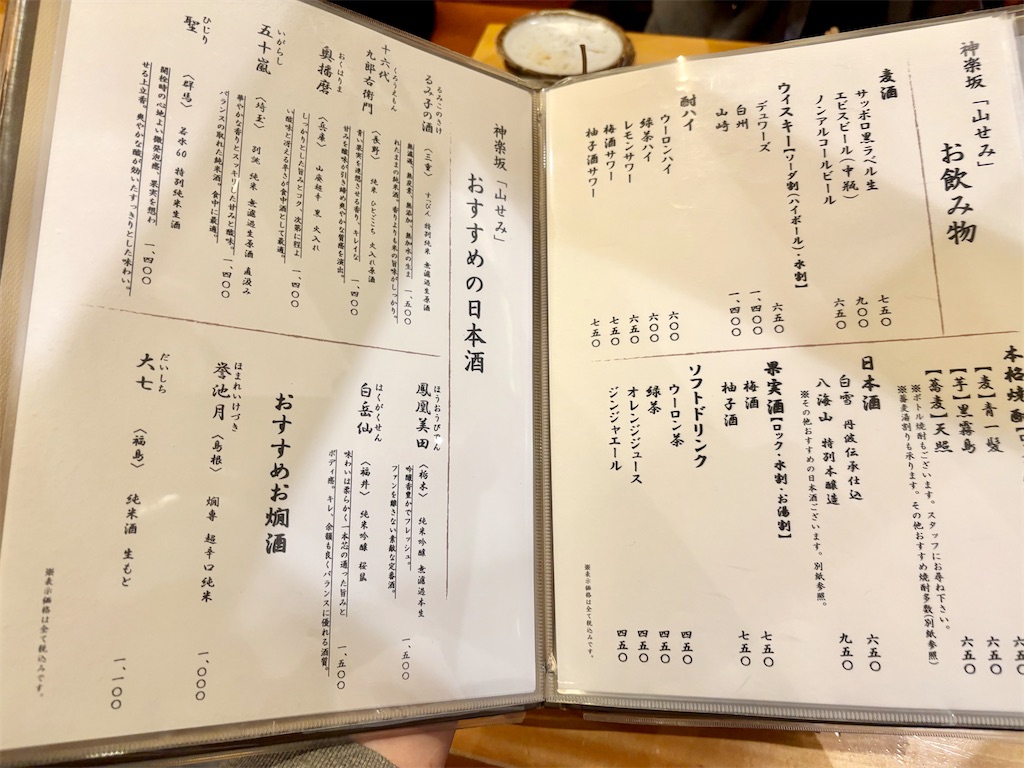 神楽坂「山せみ」
お飲み物
麦酒
サッポロ黒ラベル生 七五〇
エビスビール(中瓶) 九〇〇
ノンアルコールビール 六五〇
ウイスキー【ソーダ割(ハイボール)・水割】
デュワーズ 六五〇
白州 一、四〇〇
山崎 一、四〇〇
酎ハイ
ウーロンハイ 六〇〇
緑茶ハイ 六〇〇
レモンサワー 六五〇
梅酒サワー 七五〇
柚子酒サワー 七五〇
本格焼酎【ロ
【麦】青一髪 六五〇
【芋】黒霧島 六五〇
【蕎麦】天照 六五〇
※ボトル焼酎もございます。スタッフにお尋ね下さい。
※蕎麦湯割りも承ります。その他おすすめ焼酎多数(別紙参照)
日本酒
白雪 丹波伝承仕込 六五〇
八海山 特別本醸造 九五〇
※その他おすすめの日本酒ございます。別紙参照。
果実酒【ロック・水割・お湯割】
梅酒 七五〇
柚子酒 七五〇
ソフトドリンク
ウーロン茶 四五〇
緑茶 四五〇
オレンジジュース 四五〇
ジンジャエール 四五〇
※表示価格は全て税込みです。
神楽坂「山せみ」
おすすめの日本酒
るみこのさけ
るみ子の酒
〈三重〉 すっぴん 特別純米 無濾過生原酒
無濾過、無炭素、無添加、無加水の生ま
れたままの純米酒。香りよりも米の旨味がしっかり。 一、五〇〇
十六代
くろうえもん
九郎右衛門
〈長野〉 純米 ひとごこち 火入れ原酒
青い果実を連想させる香り、キレイな
甘みを酸味が引き締め爽やかな質感を演出。 一、四〇〇
おくはりま
奥播磨
〈兵庫〉 山廃超辛 黒 火入れ
しっかりとした旨みとコク、次第に程よ
い酸味と冴える辛さが食中酒として最適。 一、四〇〇
いがらし
五十嵐
〈埼玉〉 別誂 純米 無濾過生原酒 直汲み
華やかな香りとスッキリした甘みと酸味。
バランスの取れた純米酒。食中に最適。 一、四〇〇
ひじり
聖
〈群馬〉 若水60 特別純米生酒
開栓時の心地よい微発泡感、果実を想わ
せる上立香。爽やかな酸が効いたすっきりとした味わい。 一、四〇〇
ほうおうびでん
鳳凰美田
〈栃木〉 純米吟醸 無濾過本生
吟醸香豊かでフレッシュ。
ファンを離さない素敵な定番酒。 一、五〇〇
はくがくせん
白岳仙
〈福井〉 純米吟醸 桜鼠
味わいは柔らかく一本芯の通った旨みと
ボディ感。キレ、余韻も良くバランスに優れる酒質。 一、五〇〇
おすすめお燗酒
ほまれいけづき
誉池月
〈島根〉 燗専 超辛口純米 一、〇〇〇
だいしち
大七
〈福島〉 純米酒 生もと 一、一〇〇
※表示価格は全て税込みです。